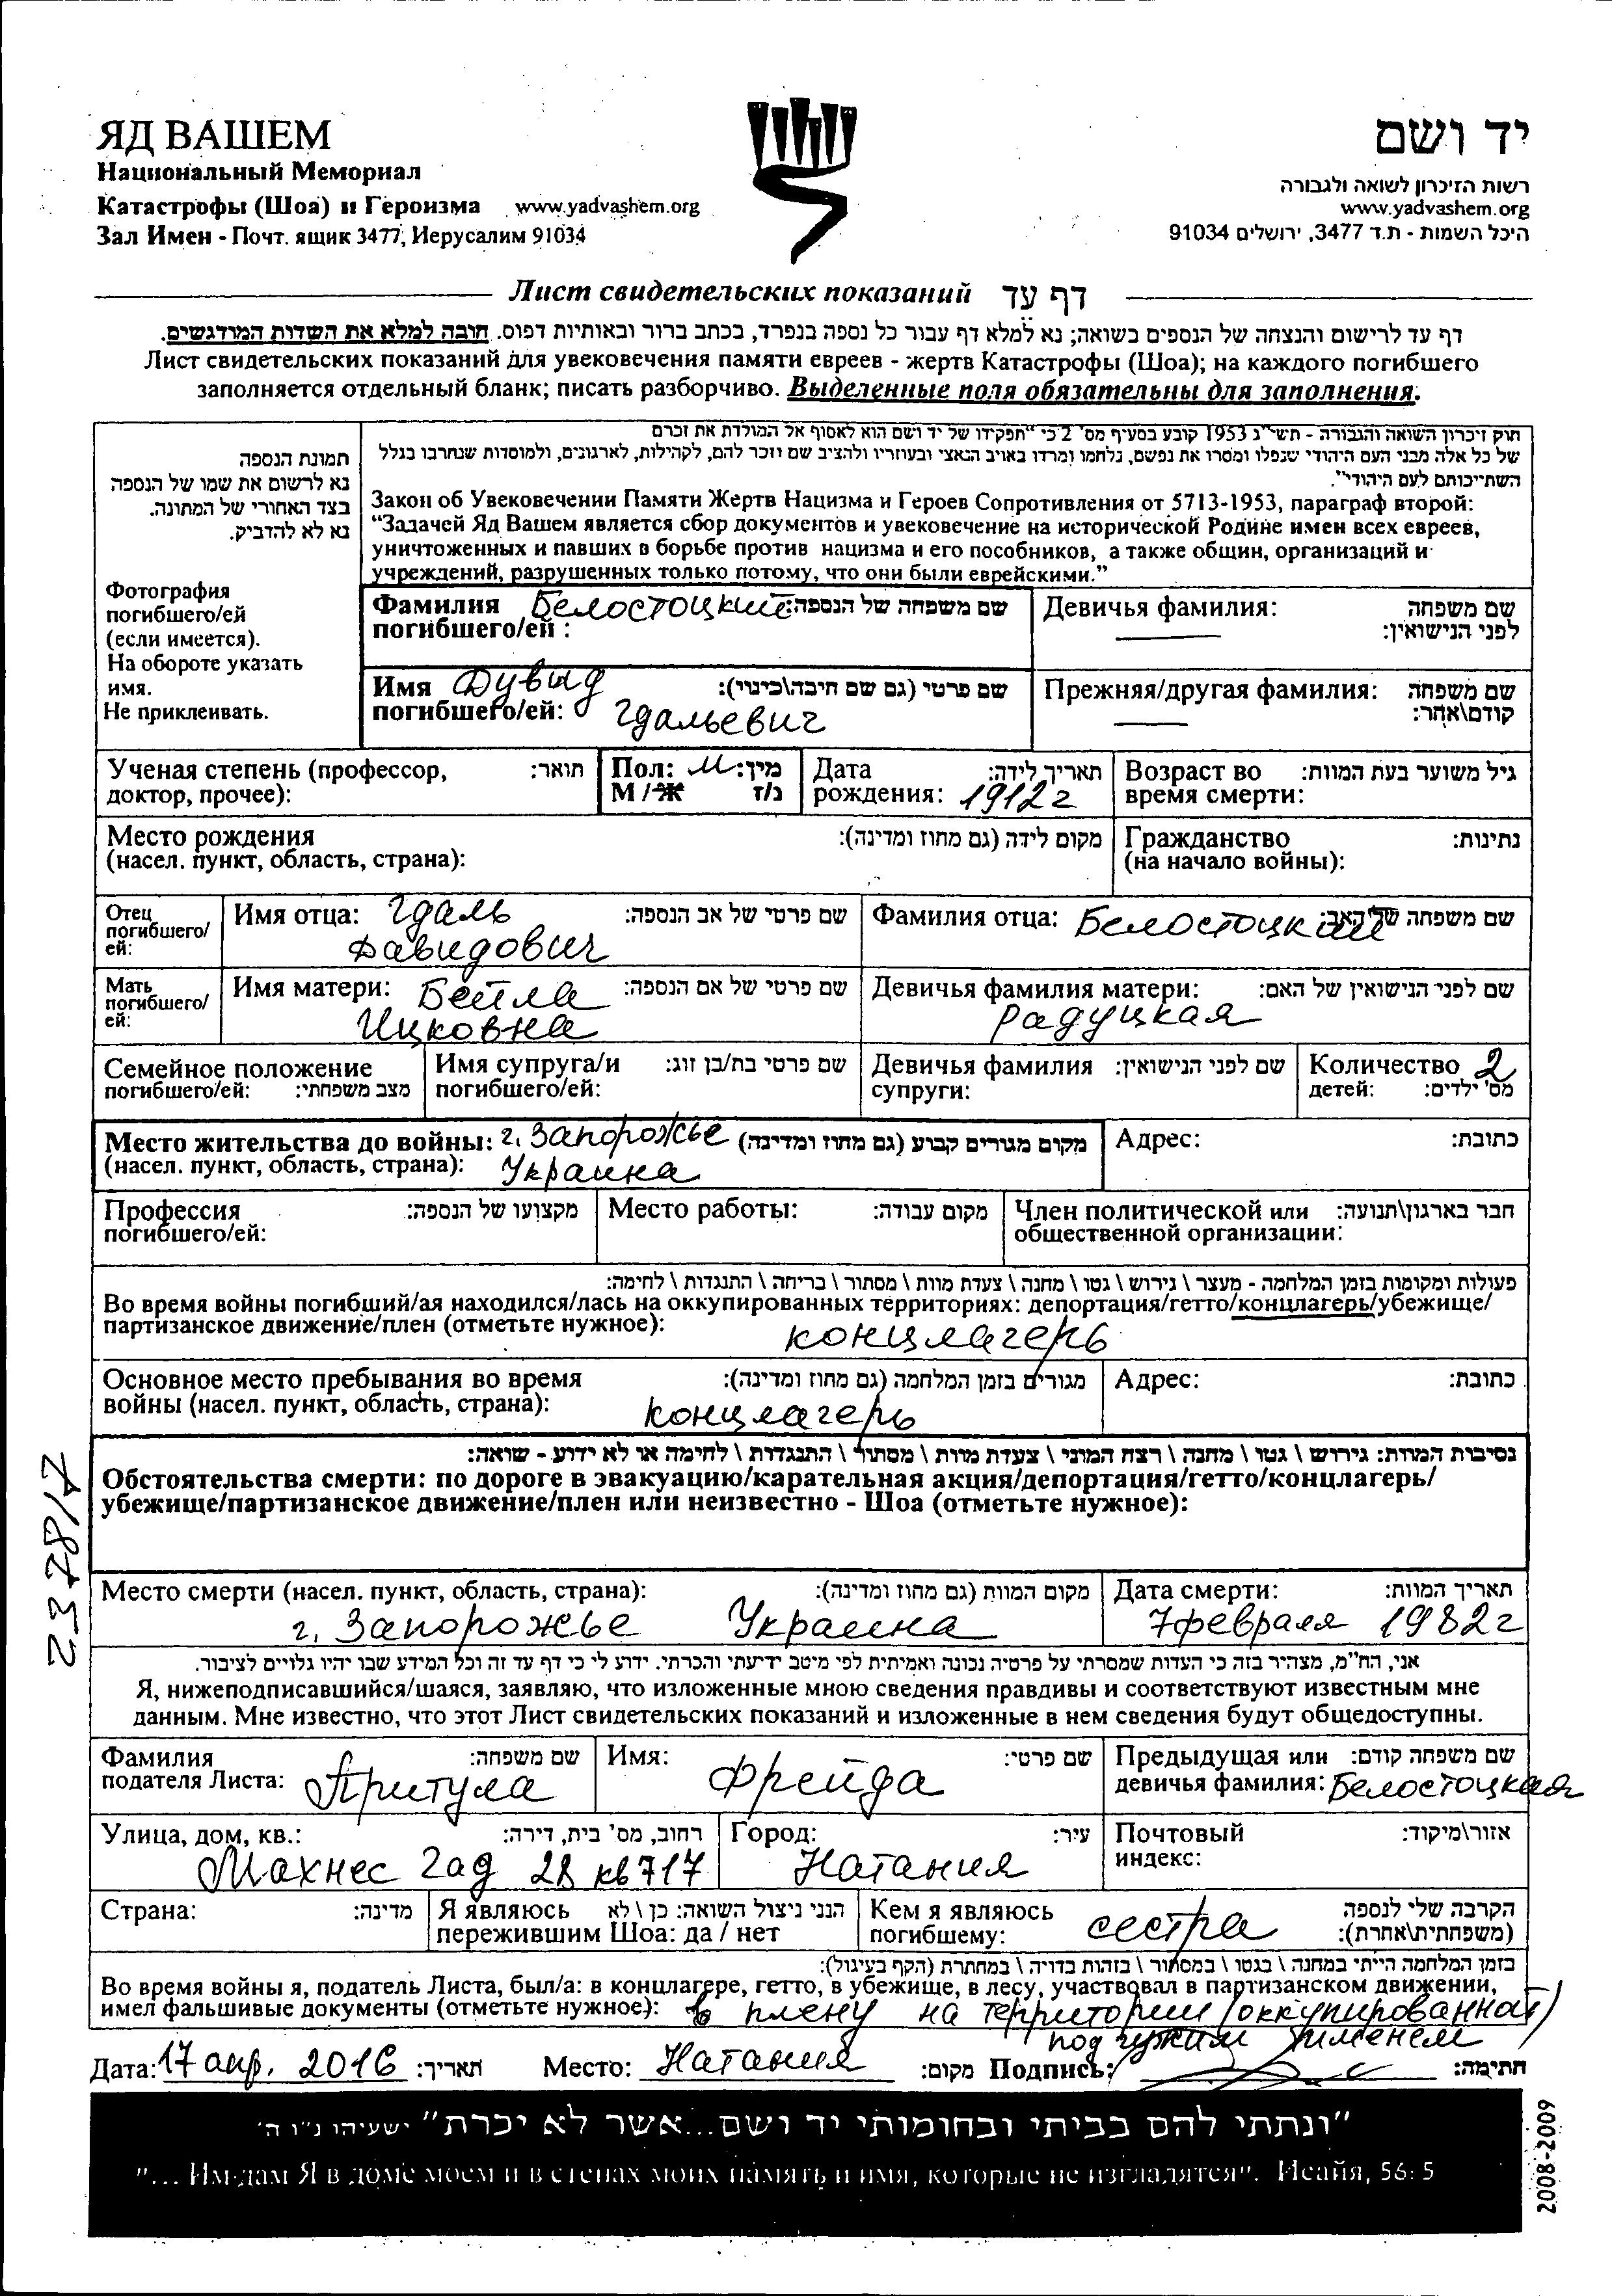 ЯД ВАШЕМ
Национальный Мемориал
Катастрофы (Шоа) и Героизма www.yadvashem.org
Зал Имен - Почт. ящик 3477, Иерусалим 91034
יד ושם
רשות הזיכרון לשואה ולגבורה
www.yadvashem.org
היכל השמות - ת.ד 3477, ירושלים 91034
Лист свидетельских показаний דף עד
דף עד לרישום והנצחה של הנספים בשואה; נא למלא דף עבור כל נספה בנפרד, בכתב ברור ובאותיות דפוס. חובה למלא את השדות המודגשים.
Лист свидетельских показаний для увековечения памяти евреев - жертв Катастрофы (Шоа); на каждого погибшего
заполняется отдельный бланк; писать разборчиво. Выделенные поля обязательны для заполнения.
תמונת הנספה
נא לרשום את שמו של הנספה
בצד האחורי של התמונה.
נא לא להדביק.
Фотография
погибшего/ей
(если имеется).
На обороте указать
имя.
Не приклеивать.
חוק זיכרון השואה והגבורה - תשי"ג 1953 קובע בסעיף מס' 2 כי "תפקידו של יד ושם הוא לאסוף אל המולדת את זכרם
של כל אלה מבני העם היהודי שנפלו ומסרו את נפשם, נלחמו ומרדו באויב הנאצי ובעוזריו ולהציב שם וזכר להם, לקהילות, לארגונים, ולמוסדות שנחרבו בגלל
השתייכותם לעם היהודי".
Закон об Увековечении Памяти Жертв Нацизма и Героев Сопротивления от 5713-1953, параграф второй:
"Задачей Яд Вашем является сбор документов и увековечение на исторической Родине имен всех евреев,
уничтоженных и павших в борьбе против нацизма и его пособников, а также общин, организаций и
учреждений, разрушенных только потому, что они были еврейскими."
Фамилия Белостоцкий שם משפחה של הנספה:
погибшего/ей :
Девичья фамилия: שם משפחה
לפני הנישואין:
Имя Дувид שם פרטי (גם שם חיבה\כינוי):
погибшего/ей: Гдальевич
Прежняя/другая фамилия: שם משפחה
קודם\אחר:
Ученая степень (профессор, תואר:
доктор, прочее):
Пол: М מין:
М / Ж ז/נ
Дата תאריך לידה:
рождения: 1912 г
Возраст во גיל משוער בעת המוות:
время смерти:
Место рождения מקום לידה (גם מחוז ומדינה):
(насел. пункт, область, страна):
Гражданство נתינות:
(на начало войны):
Отец
погибшего/
ей:
Имя отца: Гдаль שם פרטי של אב הנספה:
Давидович
Фамилия отца: Белостоцкий שם משפחה של האב:
Мать
погибшего/
ей:
Имя матери: Бейла שם פרטי של אם הנספה:
Ицковна
Девичья фамилия матери: שם לפני הנישואין של האם:
Радуцкая
Семейное положение
погибшего/ей: מצב משפחתי:
Имя супруга/и שם פרטי בת/בן זוג:
погибшего/ей:
Девичья фамилия שם לפני הנישואין:
супруги:
Количество 2
детей: מס' ילדים:
Место жительства до войны: г. Запорожье מקום מגורים קבוע (גם מחוז ומדינה)
(насел. пункт, область, страна): Украина
Адрес: כתובת:
Профессия מקצועו של הנספה:
погибшего/ей:
Место работы: מקום עבודה:
Член политической или חבר בארגון\תנועה:
общественной организации:
פעולות ומקומות בזמן המלחמה - מעצר \ גירוש \ גטו \ מחנה \ צעדת מוות \ מסתור \ בריחה \ התנגדות \ לחימה:
Во время войны погибший/ая находился/лась на оккупированных территориях: депортация/гетто/концлагерь/убежище/
партизанское движение/плен (отметьте нужное): концлагерь
Основное место пребывания во время מגורים בזמן המלחמה (גם מחוז ומדינה):
войны (насел. пункт, область, страна): концлагерь
Адрес: כתובת:
נסיבות המוות: גירוש \ גטו \ מחנה \ רצח המוני \ צעדת מוות \ מסתור \ התנגדות \ לחימה או לא ידוע - שואה:
Обстоятельства смерти: по дороге в эвакуацию/карательная акция/депортация/гетто/концлагерь/
убежище/партизанское движение/плен или неизвестно - Шоа (отметьте нужное):
Место смерти (насел. пункт, область, страна): מקום המוות (גם מחוז ומדינה):
г. Запорожье Украина
Дата смерти: תאריך המוות:
7 февраля 1982 г
אני, הח"מ, מצהיר בזה כי העדות שמסרתי על פרטיה נכונה ואמיתית לפי מיטב ידיעתי והכרתי. ידוע לי כי דף עד זה וכל המידע שבו יהיו גלויים לציבור.
Я, нижеподписавшийся/шаяся, заявляю, что изложенные мною сведения правдивы и соответствуют известным мне
данным. Мне известно, что этот Лист свидетельских показаний и изложенные в нем сведения будут общедоступны.
Фамилия שם משפחה:
подателя Листа: Притула
Имя: Фрейда שם פרטי:
Предыдущая или שם משפחה קודם:
девичья фамилия: Белостоцкая
Улица, дом, кв.: רחוב, מס' בית, דירה:
Махнес Гад 28 кв 717
Город: עיר:
Натания
Почтовый אזור\מיקוד:
индекс:
Страна: מדינה:
Я являюсь הנני ניצול השואה: כן \ לא
пережившим Шоа: да / нет
Кем я являюсь сестра הקרבה שלי לנספה
погибшему: (משפחתית\אחרת):
בזמן המלחמה הייתי במחנה \ בגטו \ במסתור \ בזהות בדויה \ במחתרת (הקף בעיגול):
Во время войны я, податель Листа, был/а: в концлагере, гетто, в убежище, в лесу, участвовал в партизанском движении,
имел фальшивые документы (отметьте нужное): в плену на территории (оккупированной)
под чужим именем
Дата: 17 апр. 2016 תאריך: Место: Натания מקום: Подпись: חתימה:
"ונתתי להם בביתי ובחומותי יד ושם...אשר לא יכרת" ישעיהו נ"ו ה'
"... Им дам Я в доме моем и в стенах моих память и имя, которые не изгладятся". Исайя, 56: 5
2378/17
2008-2009